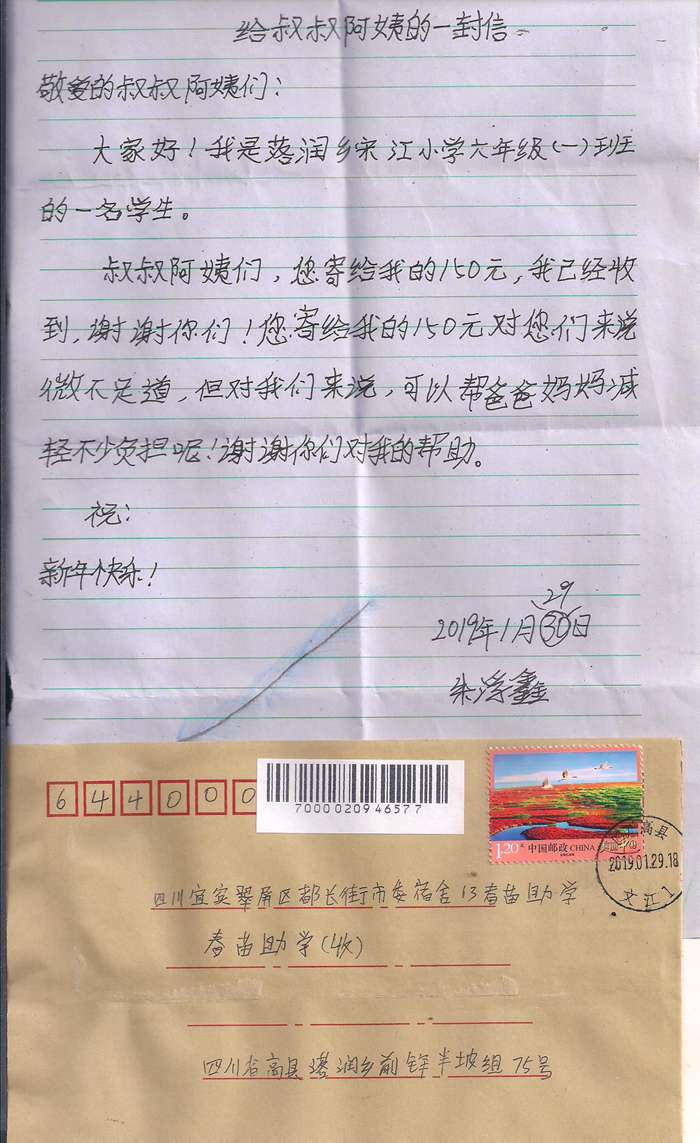 给叔叔阿姨的一封信
敬爱的叔叔阿姨们：
大家好！我是落润乡宋江小学六年级(一)班
的一名学生。
叔叔阿姨们，您寄给我的150元，我已经收
到，谢谢你们！您寄给我的150元对您们来说
微不足道，但对我们来说，可以帮爸爸妈妈减
轻不少负担呢！谢谢你们对我的帮助。
祝：
新年快乐！
29
2019年1月30日
朱淳鑫
644000
7000020946577
1.20元 中国邮政 CHINA
高县
2019.01.29.18
文江1
四川宜宾翠屏区都长街市委宿舍13春苗助学
春苗助学(收)
四川省高县落润乡前锋半坡组75号